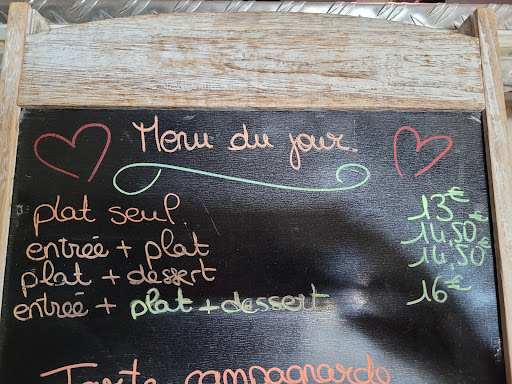 Menu du jour.
plat seul. 13€
entrée + plat 14,50€
plat + dessert 14,50€
entrée + plat + dessert 16€
Tarte campagnarde